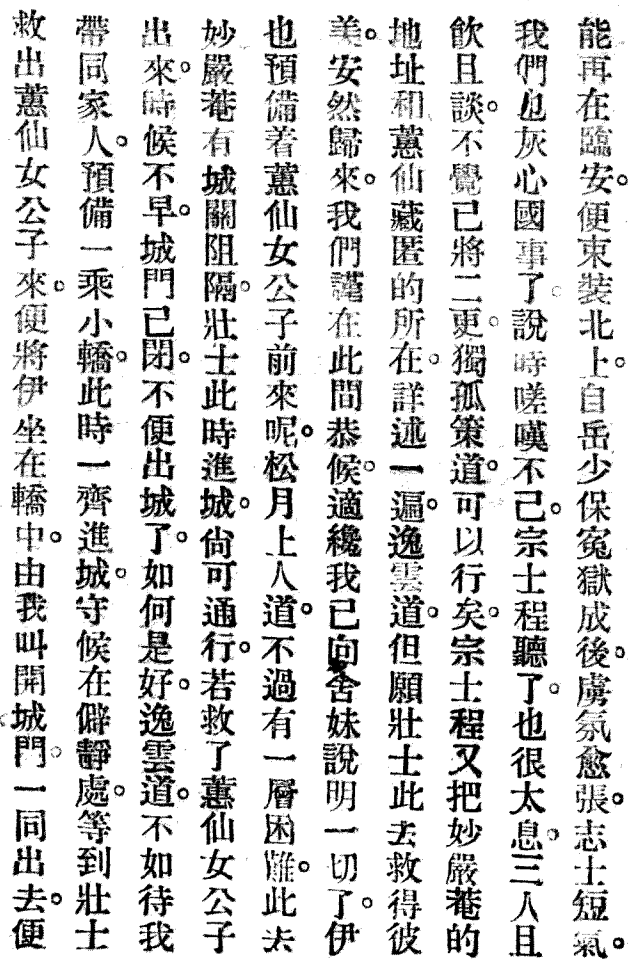 能再在臨安。便束裝北上。自岳少保寃獄成後。虜氛愈張。志士短氣。
我們也灰心國事了。說時嗟嘆不已。宗士程聽了。也很太息。三人且
飲且談。不覺已將二更。獨孤策道。可以行矣。宗士程又把妙嚴菴的
地址和蕙仙藏匿的所在。詳述一遍。逸雲道。但願壯士此去救得彼
美。安然歸來。我們謹在此間恭候。適纔我已向舍妹說明一切了。伊
也預備着蕙仙女公子前來呢。松月上人道。不過有一層困難。此去
妙嚴菴有城關阻隔。壯士此時進城。尙可通行。若救了蕙仙女公子
出來。時候不早。城門已閉。不便出城了。如何是好。逸雲道。不如待我
帶同家人。預備一乘小轎。此時一齊進城。守候在僻靜處。等到壯士
救出蕙仙女公子來。便將伊坐在轎中。由我叫開城門。一同出去。便